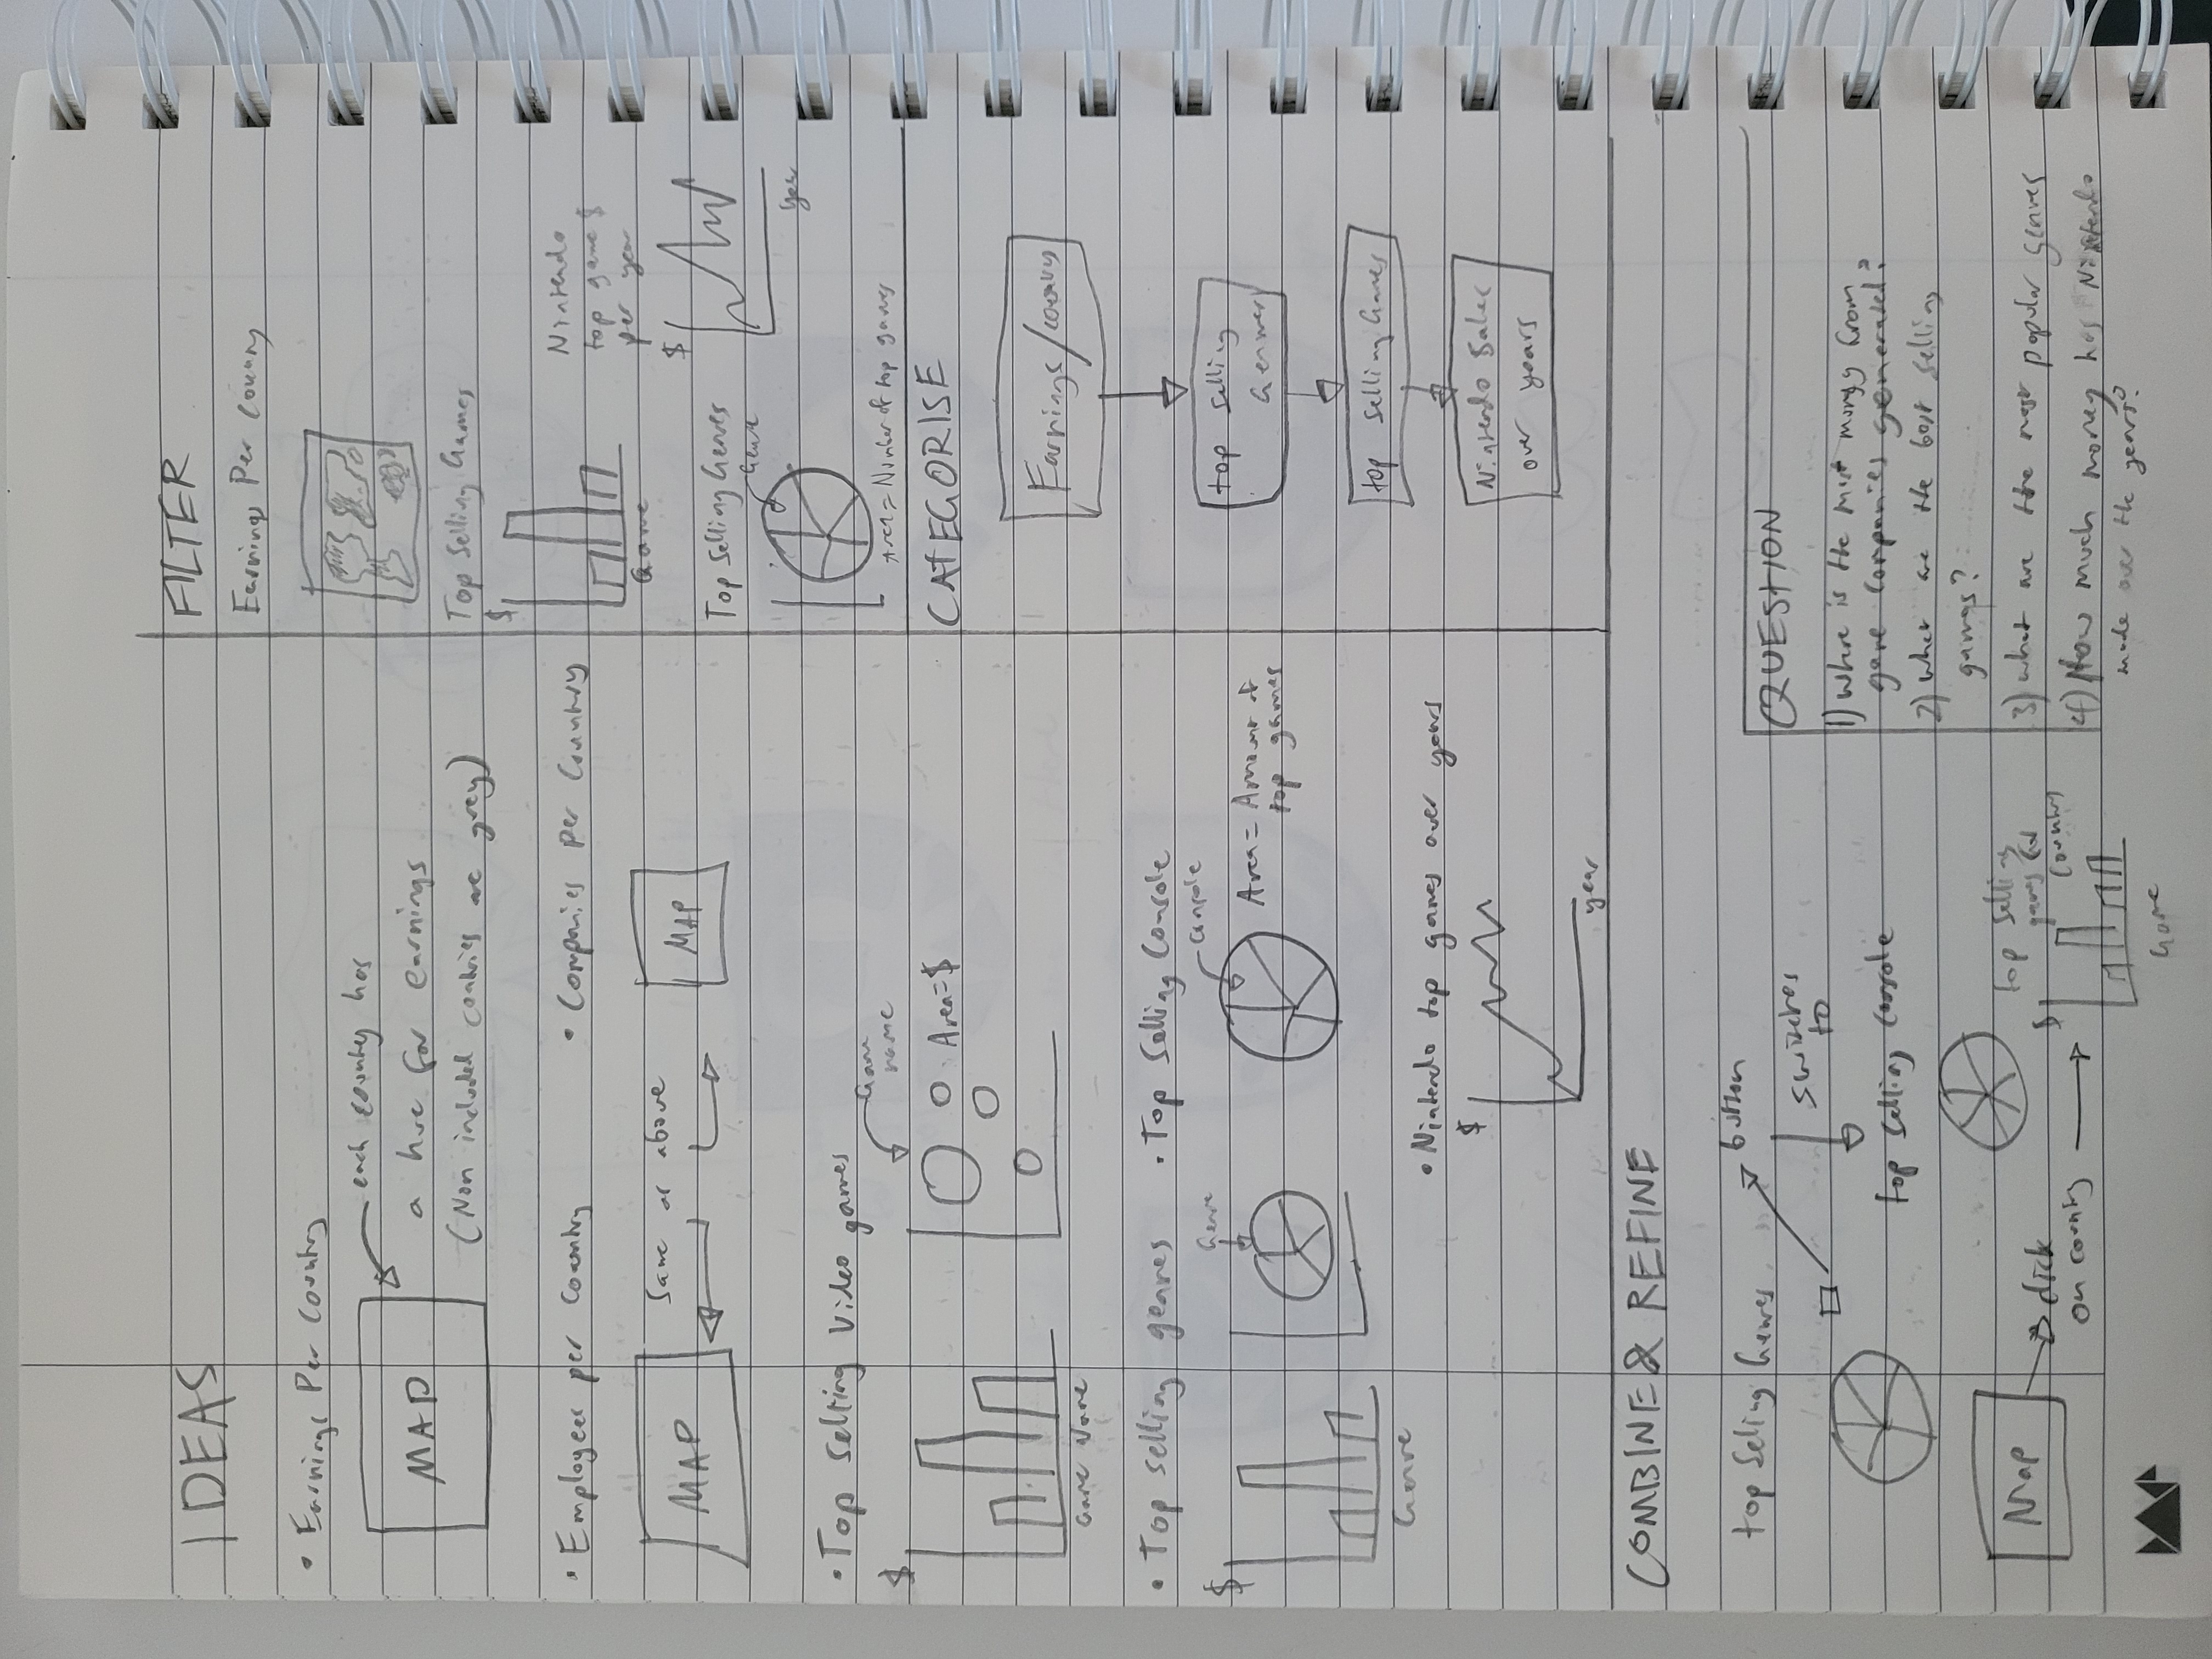 IDEAS
• Earnings Per Country
MAP
each country has
a hue for earnings
(Non included contries are grey)
• Employees per Country
• Companies Per Country
MAP
Same as above
MAP
• Top Selling Video games
$
Game Name
Game
name
Area=$
• Top selling genres
• Top Selling Console
$
Genre
Genre
Console
Area = Amount of
top games
• Nintendo top games over years
$
year
FILTER
Earnings Per Country
Top Selling Games
$
Game
Nintendo
top game $
per year
$
year
Top Selling Genres
Genre
Area = Number of top games
CATEGORISE
Earnings/country
top selling
Genres
top selling Games
Nintendo Sales
over years
COMBINE & REFINE
top Seling Genres
button
switches
to
top selling console
Map
click
on country
top selling
games for
Country
$
Game
QUESTION
1) where is the most money from
game companies generated?
2) what are the best selling
games?
3) what are the most popular genres
4) How much money has Nintendo
made over the years?